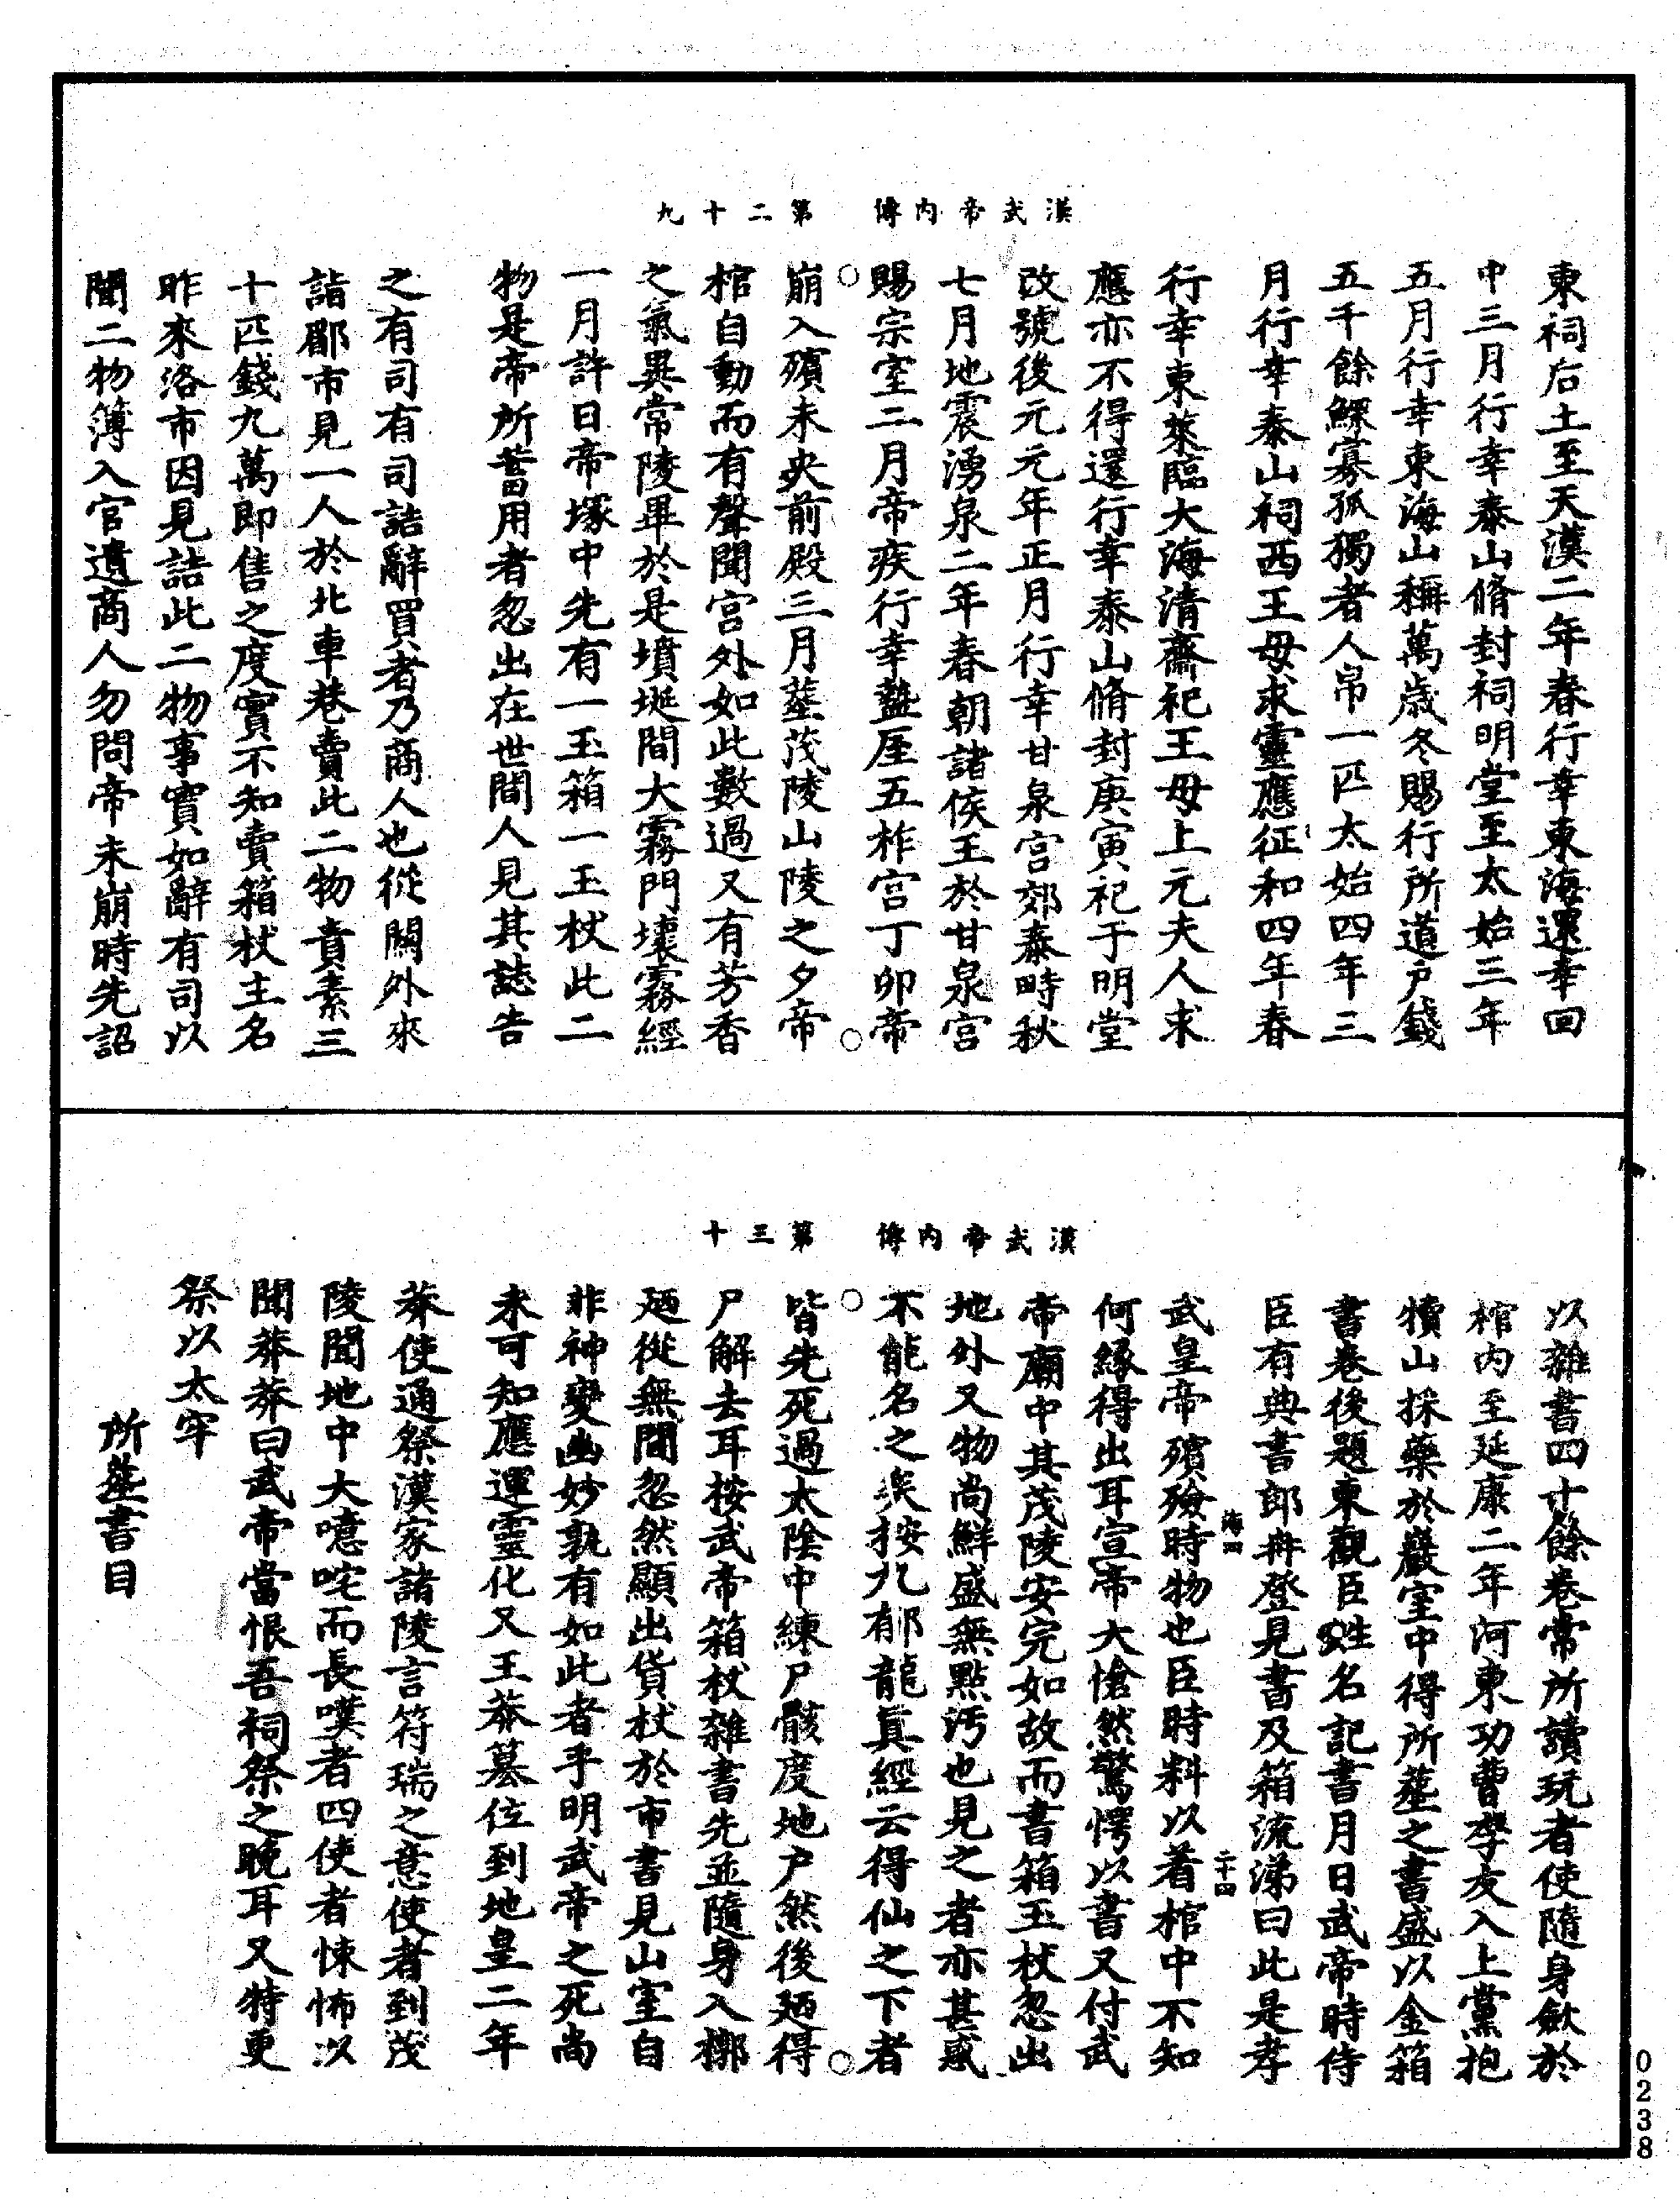 漢武帝內傳　第二十九
東祠后土至天漢二年春行幸東海還幸回
中三月行幸泰山脩封祠明堂至太始三年
五月行幸東海山稱萬歲冬賜行所道戶錢
五千餘鰥寡孤獨者人帛一匹太始四年三
月行幸泰山祠西王母求靈應征和四年春
行幸東萊臨大海清齋祀王母上元夫人求
應亦不得還行幸泰山脩封庚寅祀于明堂
改號後元元年正月行幸甘泉宮郊泰畤秋
七月地震湧泉二年春朝諸侯王於甘泉宮
賜宗室二月帝疾行幸盩厔五柞宮丁卯帝
崩入殯未央前殿三月葬茂陵山陵之夕帝
棺自動而有聲聞宮外如此數過又有芳香
之氣異常陵畢於是墳埏間大霧門壞霧經
一月許日帝塚中先有一玉箱一玉杖此二
物是帝所蓄用者忽出在世間人見其誌告
之有司有司詰辭買者乃商人也從關外來
詣郡市見一人於北車巷賣此二物責素三
十匹錢九萬即售之度實不知賣箱杖主名
昨來洛市因見詰此二物事實如辭有司以
聞二物簿入官遺商人勿問帝未崩時先詔
漢武帝內傳　第三十
以雜書四十餘卷常所讀玩者使隨身斂於
棺內至延康二年河東功曹李友入上黨抱
犢山採藥於巖室中得所葬之書盛以金箱
書卷後題東觀臣姓名記書月日武帝時侍
臣有典書郎冉登見書及箱流涕曰此是孝
武皇帝殯殮時物也臣時料以着棺中不知
海四
二十四
何緣得出耳宣帝大愴然驚愕以書又付武
帝廟中其茂陵安完如故而書箱玉杖忽出
地外又物尚鮮盛無點汚也見之者亦甚惑
不能名之矣按九都龍真經云得仙之下者
皆先死過太陰中練尸骸度地戶然後廼得
尸解去耳按武帝箱杖雜書先並隨身入槨
廼從無間忽然顯出貨杖於市書見山室自
非神變幽妙孰有如此者乎明武帝之死尚
未可知應運靈化又王莽墓位到地皇二年
莽使通祭漢家諸陵言符瑞之意使者到茂
陵聞地中大噫咤而長嘆者四使者悚怖以
聞莽莽曰武帝當恨吾祠祭之晚耳又特更
祭以太牢
所葬書目
0238